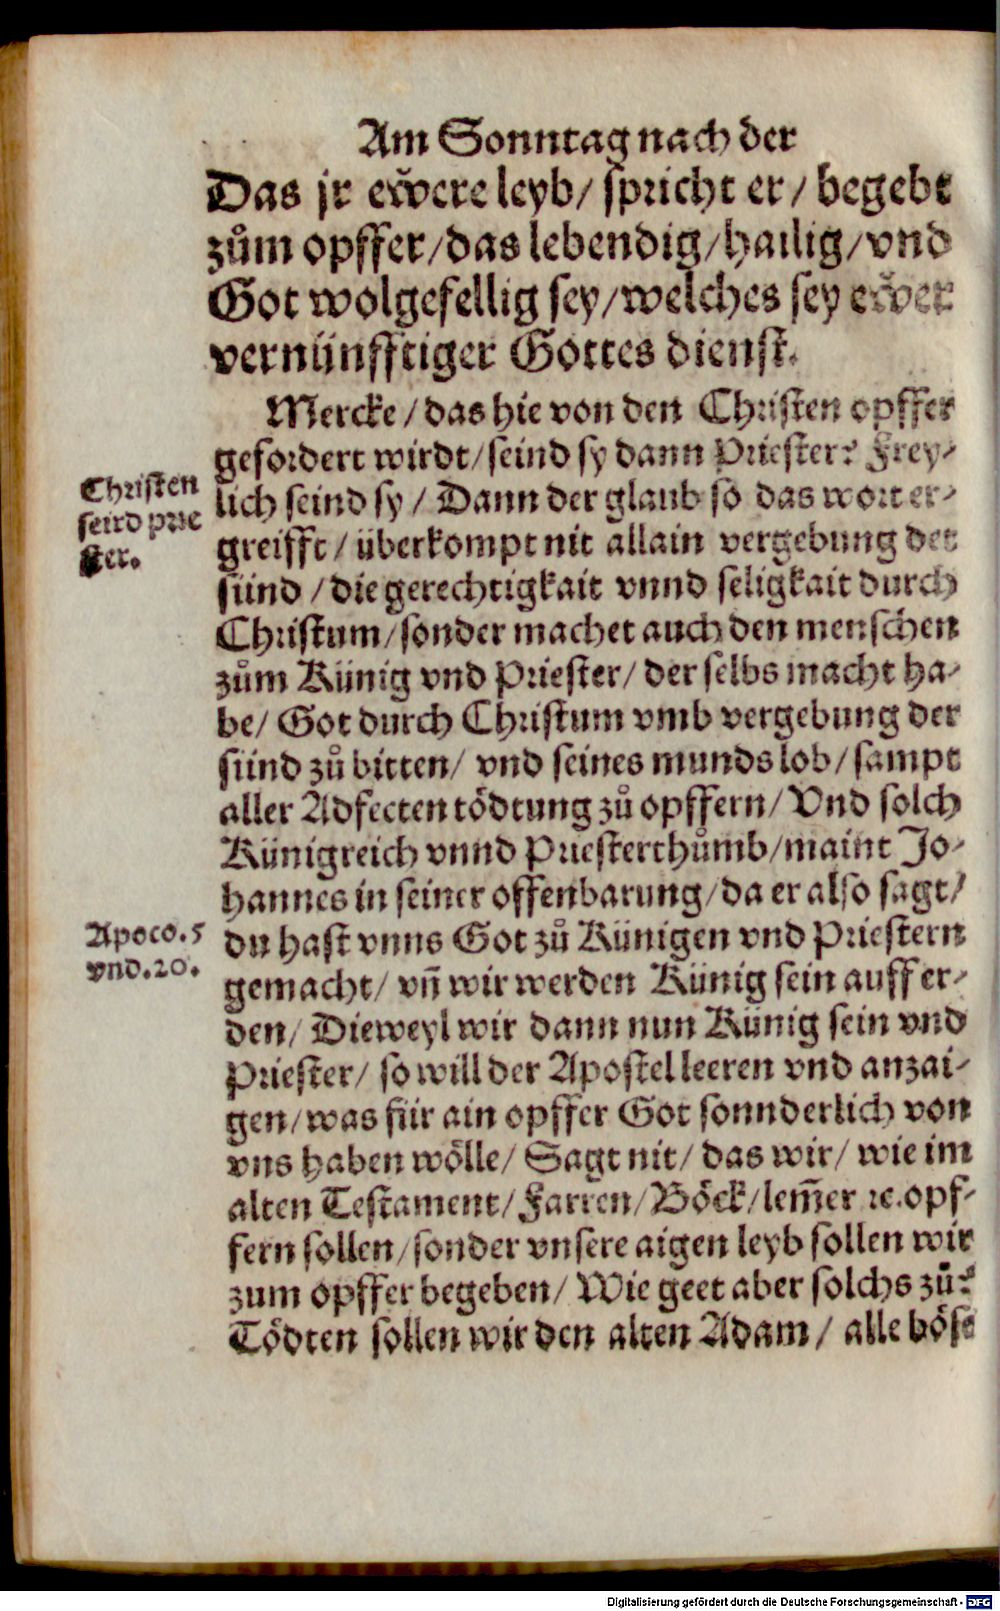 Am Sonntag nach der
Das jr eẅere leyb/ spricht er/ begebt
zům opffer/das lebendig/hailig/vnd
Got wolgefellig sey/welches sey eẅer
vernünfftiger Gottes dienst.
Mercke/das hie von den Christen opffer
gefordert wirdt/seind sy dann Priester? Frey-
Christen
seind prie
ster.
lich seind sy/ Dann der glaub so das wort er-
greifft/ überkompt nit allain vergebung der
sünd/die gerechtigkait vnnd seligkait durch
Christum/sonder machet auch den menschen
zům Künig vnd Priester/ der selbs macht ha-
be/ Got durch Christum vmb vergebung der
sünd zů bitten/ vnd seines munds lob/sampt
aller Adfecten tödtung zů opffern/ Vnd solch
Künigreich vnnd Priesterthůmb/maint Jo-
hannes in seiner offenbarung/da er also sagt/
Apoco.5
vnd.20.
du hast vnns Got zů Künigen vnd Priestern
gemacht/ vñ wir werden Künig sein auff er-
den/ Dieweyl wir dann nun Künig sein vnd
Priester/ so will der Apostel leeren vnd anzai-
gen/was für ain opffer Got sonnderlich von
vns haben wölle/ Sagt nit/ das wir/ wie im
alten Testament/Farren/Böck/lem̃er ꝛc.opf-
fern sollen/sonder vnsere aigen leyb sollen wir
zum opffer begeben/ Wie geet aber solchs zů?
Tödten sollen wir den alten Adam/ alle böse
Digitalisierung gefördert durch die Deutsche Forschungsgemeinschaft - DFG